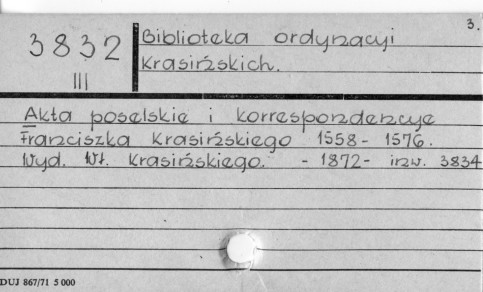 3.
3832 Biblioteka ordynacyi
III Krasińskich.
Akta poselskie i korrespondencye
Franciszka Krasińskiego 1558 - 1576.
Wyd. Wł. Krasińskiego. - 1872 - inw. 3834
DUJ 867/71 5 000